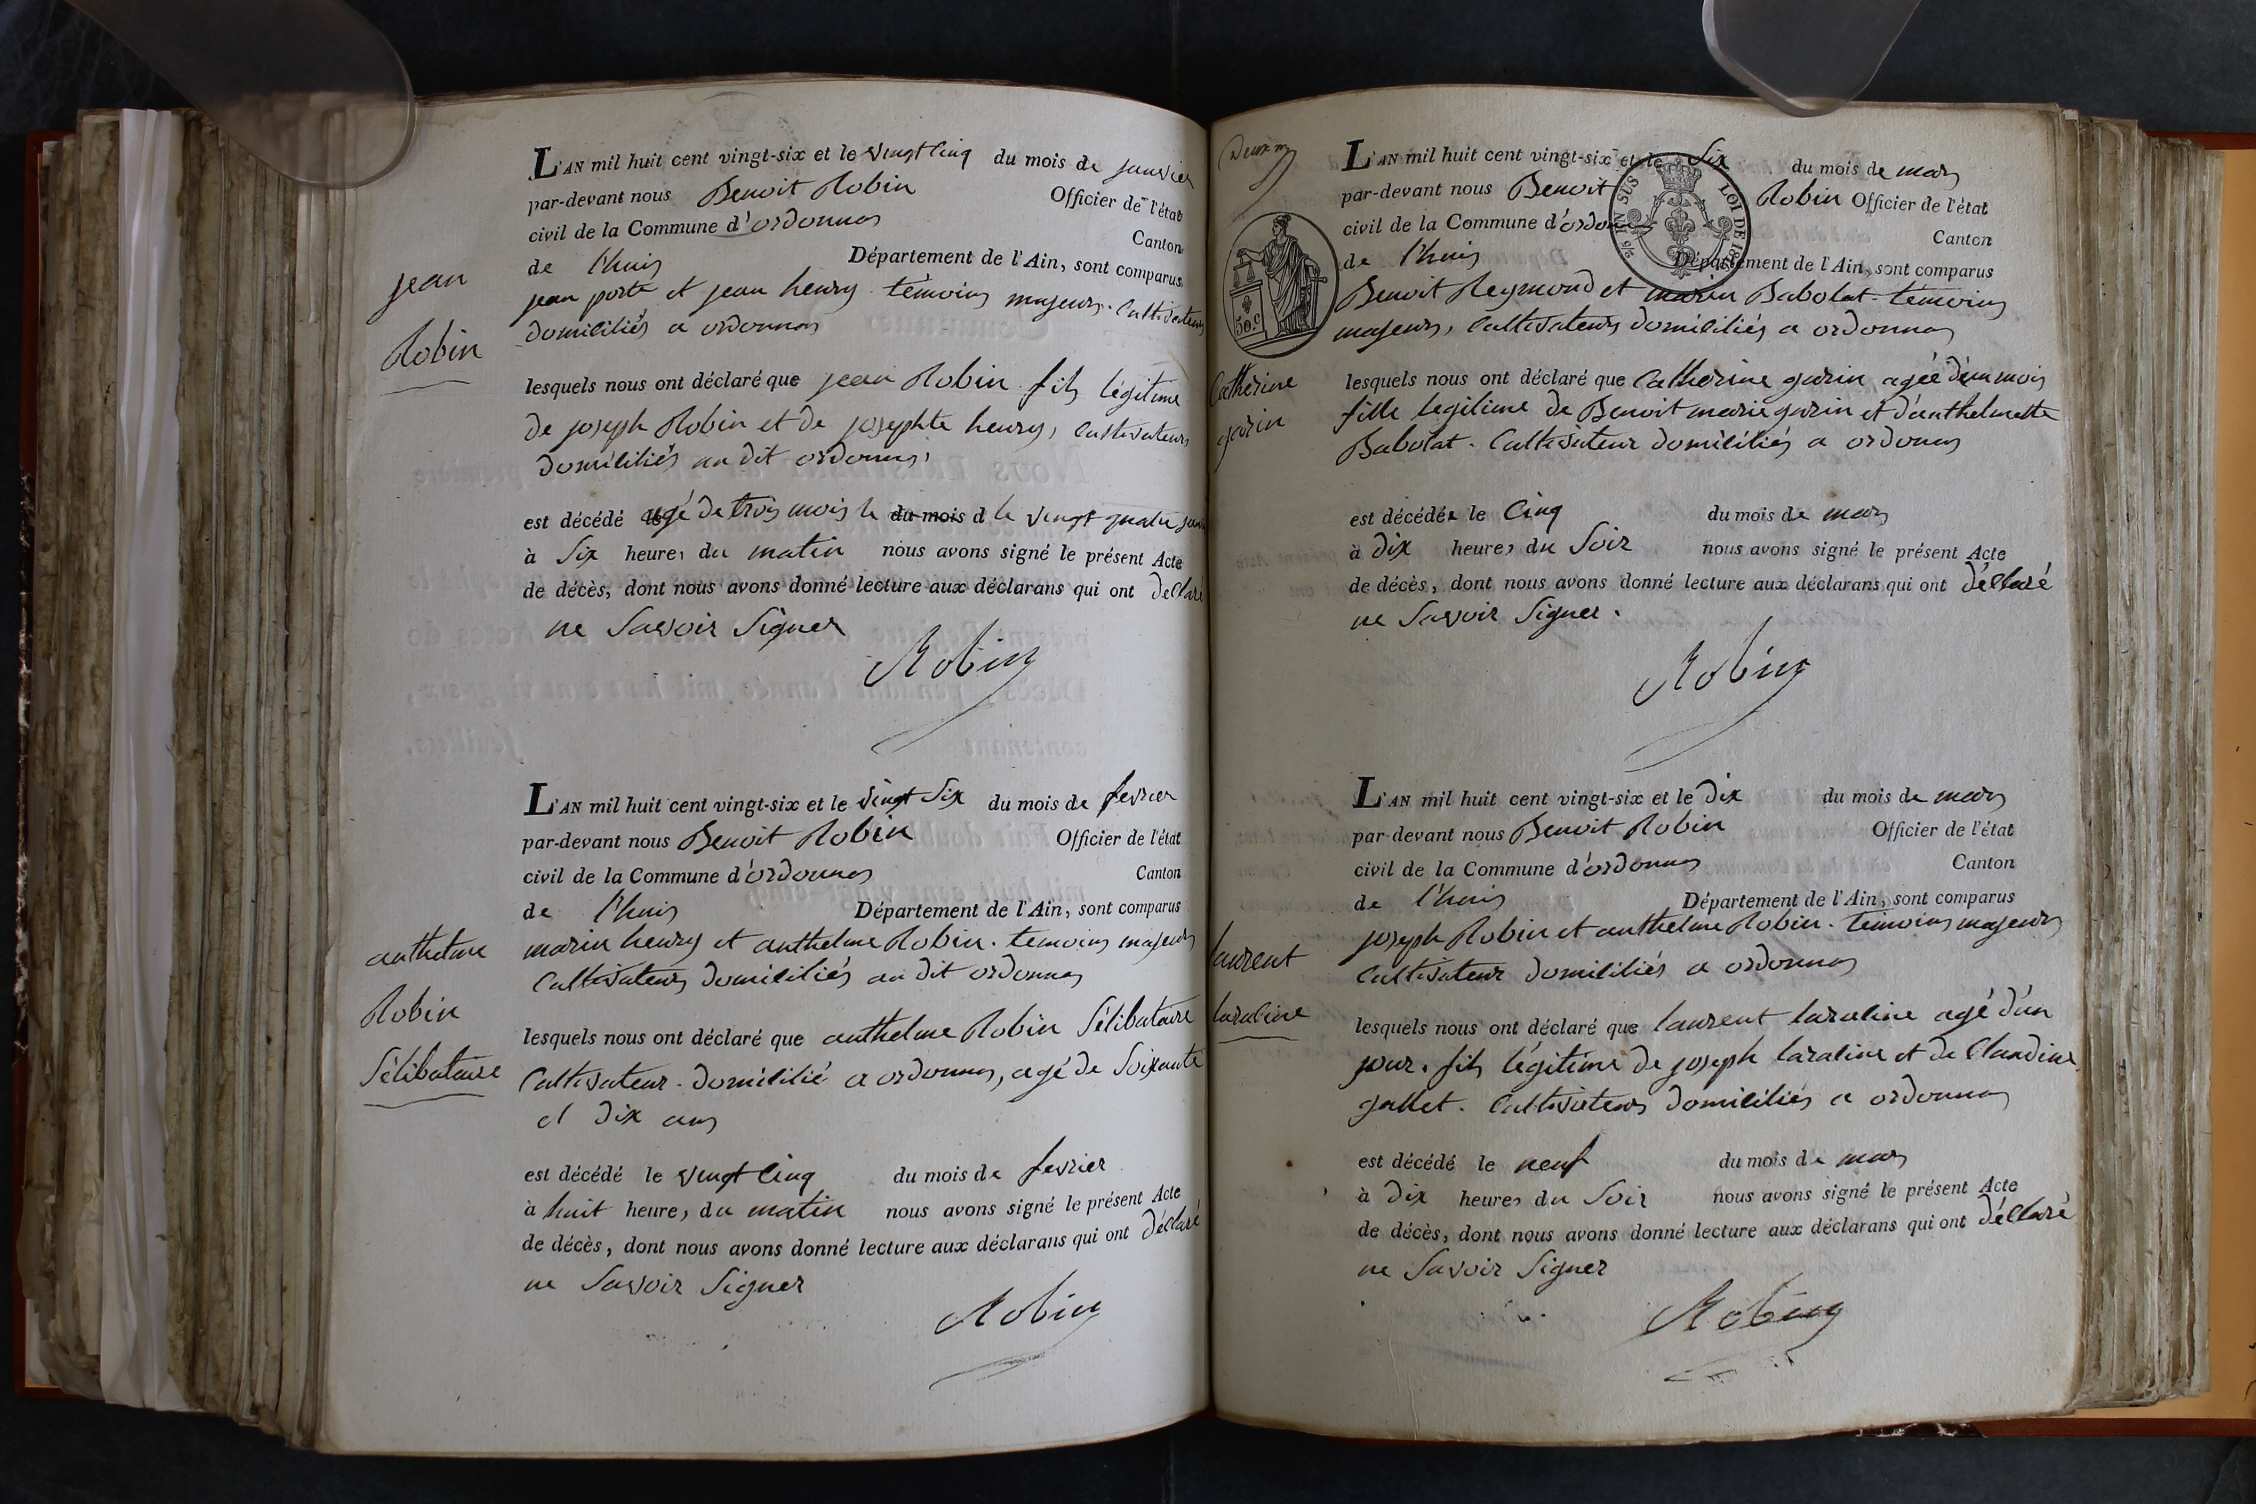 L'AN mil huit cent vingt-six et le vingt cinq du mois de janvier
par-devant nous Benoit Robin Officier de l'état
civil de la Commune d'ordonnas Canton
de l'huis Département de l'Ain, sont comparus
jean porte et jean henry témoins majeurs. Cultivateurs
domiciliés a ordonnas
jean
Robin
lesquels nous ont déclaré que jean Robin fils légitime
de joseph Robin et de josephte henry, Cultivateurs
domiciliés au dit ordonnas,
est décédé agé de trois mois le du mois d le vingt quatre janv
à Six heures du matin nous avons signé le présent Acte
de décès, dont nous avons donné lecture aux déclarans qui ont déclaré
ne Savoir Signer
Robin
L'AN mil huit cent vingt-six et le vingt Six du mois de fevrier
par-devant nous Benoit Robin Officier de l'état
civil de la Commune d'ordonnas Canton
de l'huis Département de l'Ain, sont comparus
marin henry et anthelme Robin. temoins majeurs
Cultivateurs domiciliés au dit ordonnas
anthelme
Robin
Sélibataire
lesquels nous ont déclaré que anthelme Robin Sélibataire
Cultivateur domicilié a ordonnas, agé de Soixante
et dix ans
est décédé le vingt cinq du mois de fevrier
à huit heures du matin nous avons signé le présent Acte
de décès, dont nous avons donné lecture aux déclarans qui ont déclaré
ne Savoir Signer
Robin
L'AN mil huit cent vingt-six et le Six du mois de mars
par-devant nous Benoit Robin Officier de l'état
civil de la Commune d'ordonnas Canton
de l'huis Département de l'Ain, sont comparus
Benoit Reymond et marin Babolat. témoins
majeurs, Cultivateurs domiciliés a ordonnas
EN SUS LOI DE 18
50.c
Catherine
garin
lesquels nous ont déclaré que Catherine garin agée d'un mois
fille legitime de Benoit marie garin et d'anthelmette
Babolat. Cultivateur domiciliés a ordonas
est décédée le Cinq du mois de mars
à dix heures du Soir nous avons signé le présent Acte
de décès, dont nous avons donné lecture aux déclarans qui ont déclaré
ne Savoir Signer.
Robin
L'AN mil huit cent vingt-six et le dix du mois de mars
par-devant nous Benoit Robin Officier de l'état
civil de la Commune d'ordonnas Canton
de l'huis Département de l'Ain, sont comparus
joseph Robin et anthelme Robin. témoins majeurs
Cultivateur domiciliés a ordonnas
laurent
laraline
lesquels nous ont déclaré que laurent laraline agé d'un
jour. fils légitime de joseph laraline et de Claudine
gallet. Cultivateurs domiciliés a ordonnas
est décédé le neuf du mois de mars
à dix heures du Soir nous avons signé le présent Acte
de décès, dont nous avons donné lecture aux déclarans qui ont déclaré
ne Savoir Signer
Robin